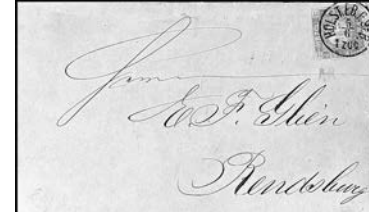 HOLSTEBRO
Herrn
E. F. Glien
Rendsburg